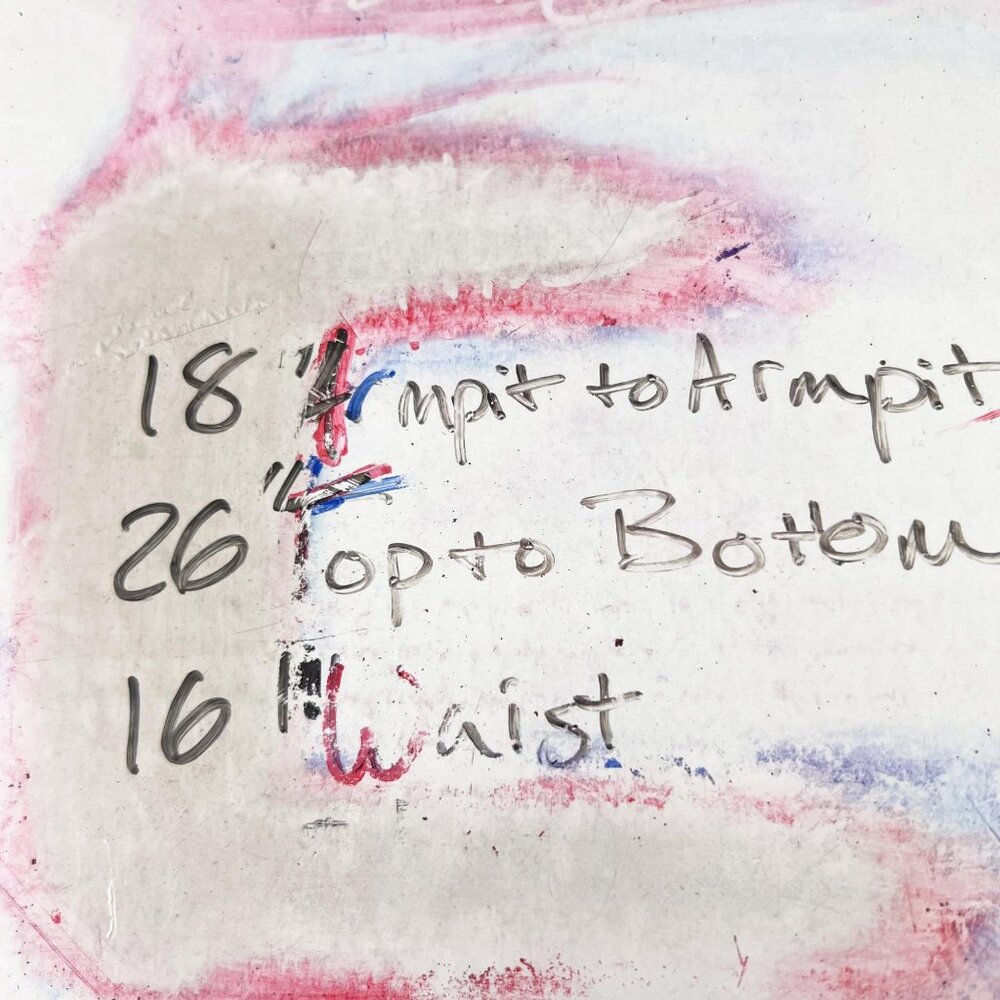 18" Armpit to Armpit
26" Top to Bottom
16" Waist